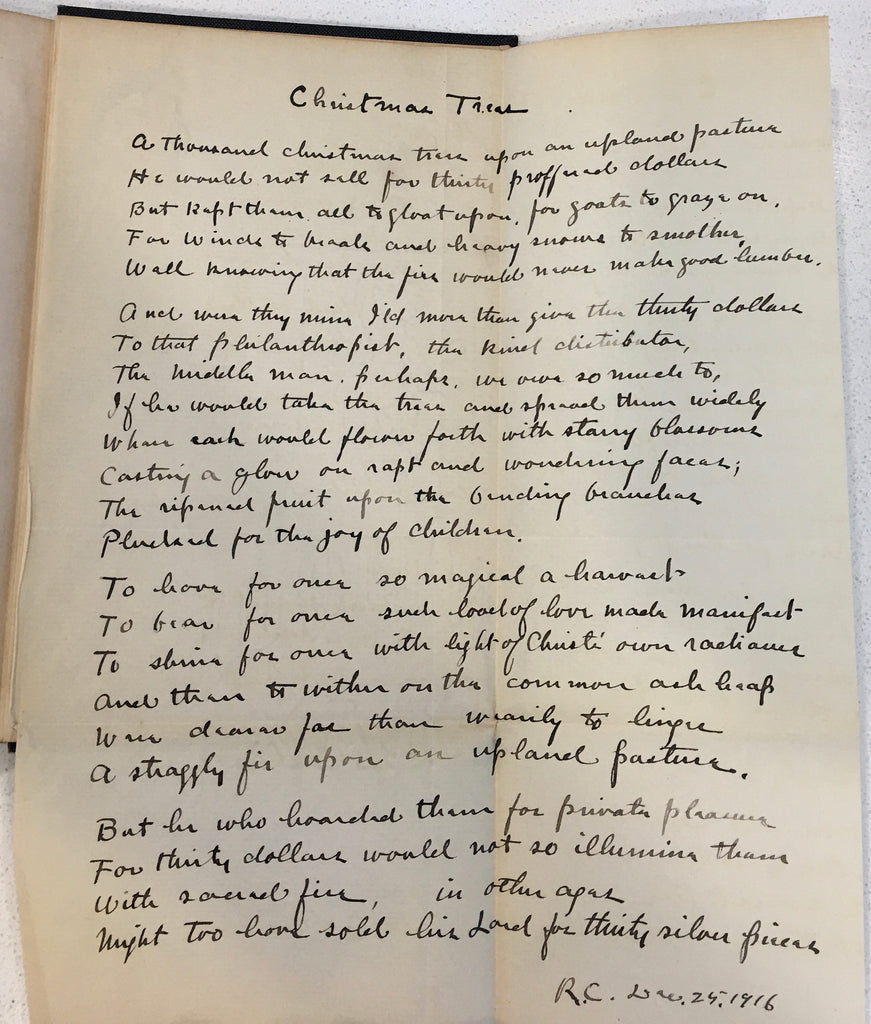 Christmas Trees
A thousand christmas trees upon an upland pasture
He would not sell for thirty proffered dollars
But kept them all to gloat upon, for goats to graze on,
For winds to break and heavy snows to smother,
Well knowing that the firs would never make good lumber.
And were they mine I'ld more than give the thirty dollars
To that philanthropist, the kind distributor,
The middle man, perhaps, we owe so much to,
If he would take the trees and spread them widely
Where each would flower forth with starry blossoms
Casting a glow on rapt and wondering faces;
The ripened fruit upon the bending branches
Plucked for the joy of children.
To have for once so magical a harvest
To bear for once such load of love made manifest
To shine for once with light of Christ's own radiance
And then to wither on the common ash heap
Were dearer far than wearily to linger
A straggly fir upon an upland pasture.
But he who hoarded them for private pleasure
For thirty dollars would not so illumine them
With sacred fire, in other ages
Might too have sold his Lord for thirty silver pieces
R.C. Dec. 25, 1916